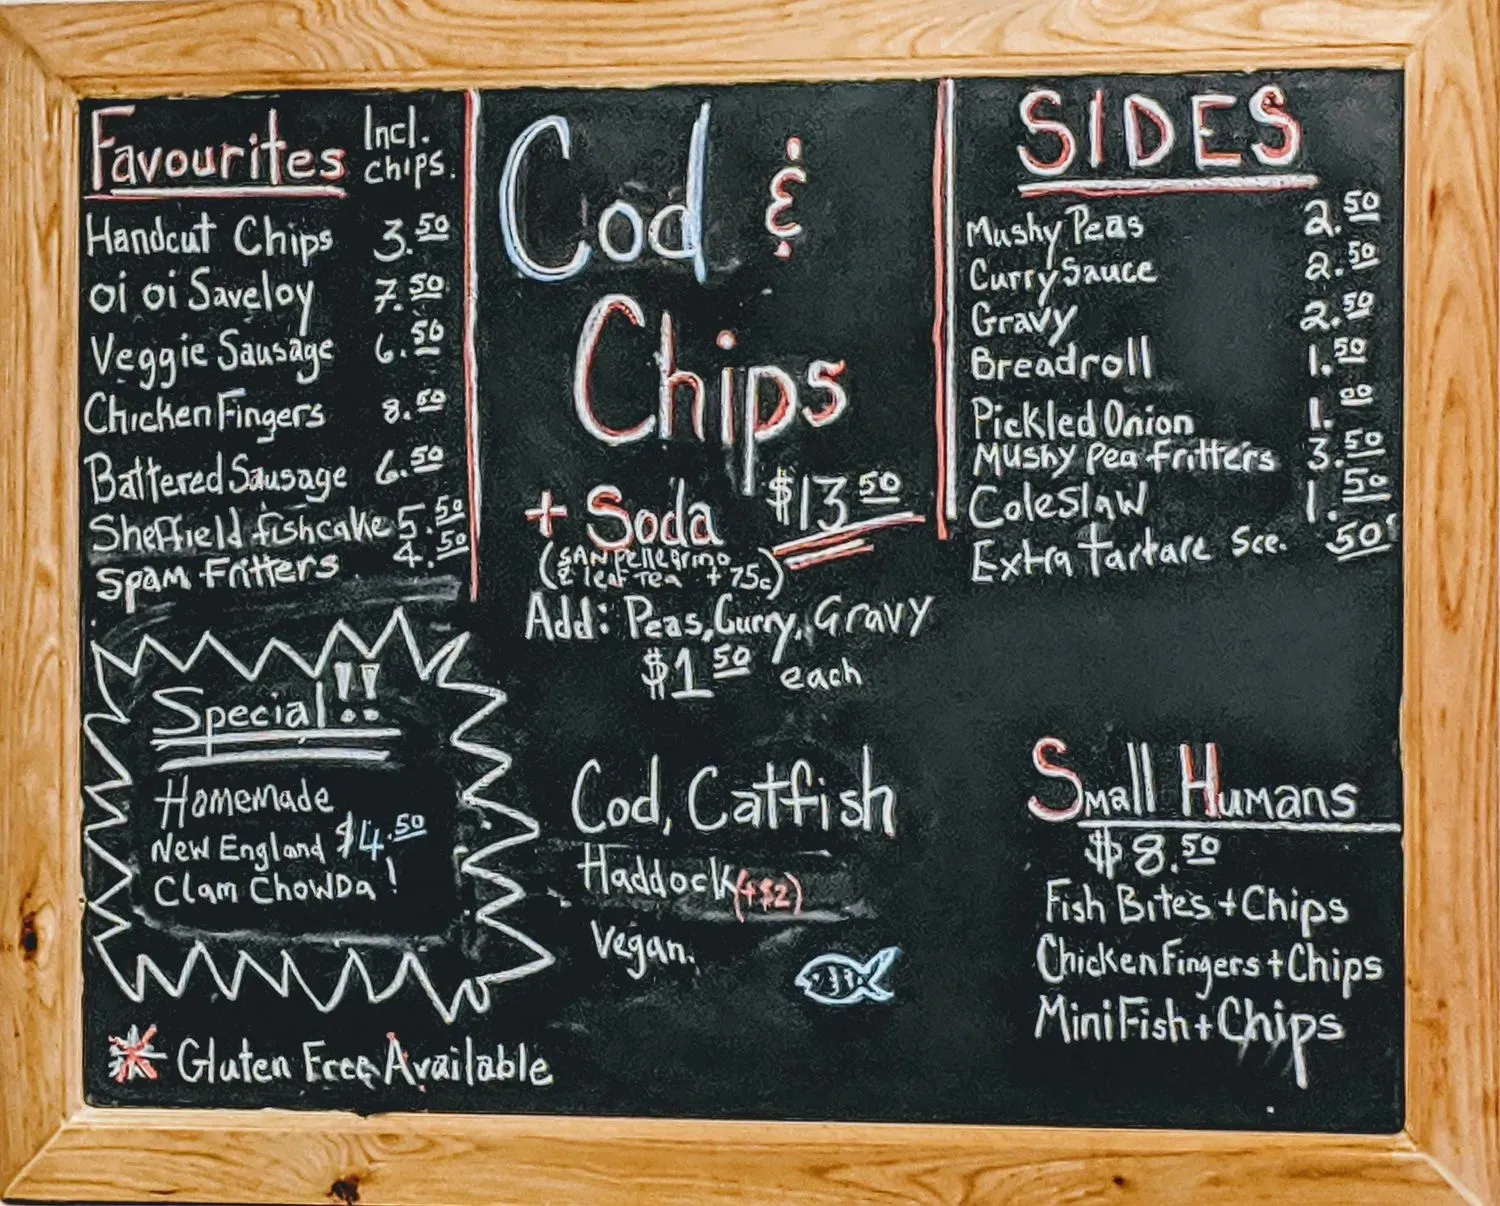 Favourites Incl. chips.
Handcut Chips 3.50
oi oi Saveloy 7.50
Veggie Sausage 6.50
Chicken Fingers 8.50
Battered Sausage 6.50
Sheffield fishcake 5.50
Spam Fritters 4.50
Special!!
Homemade
New England $4.50
Clam Chowda!
* Gluten Free Available
Cod &
Chips
+ Soda $13.50
(San Pellegrino
& leaf Tea +75c)
Add: Peas, Curry, Gravy
$1.50 each
Cod, Catfish
Haddock (+$2)
Vegan.
SIDES
Mushy Peas 2.50
Curry Sauce 2.50
Gravy 2.50
Breadroll 1.50
Pickled Onion 1.00
Mushy Pea Fritters 3.50
Coleslaw 1.50
Extra Tartare Sce. .50¢
Small Humans
$8.50
Fish Bites + Chips
Chicken Fingers + Chips
Mini Fish + Chips